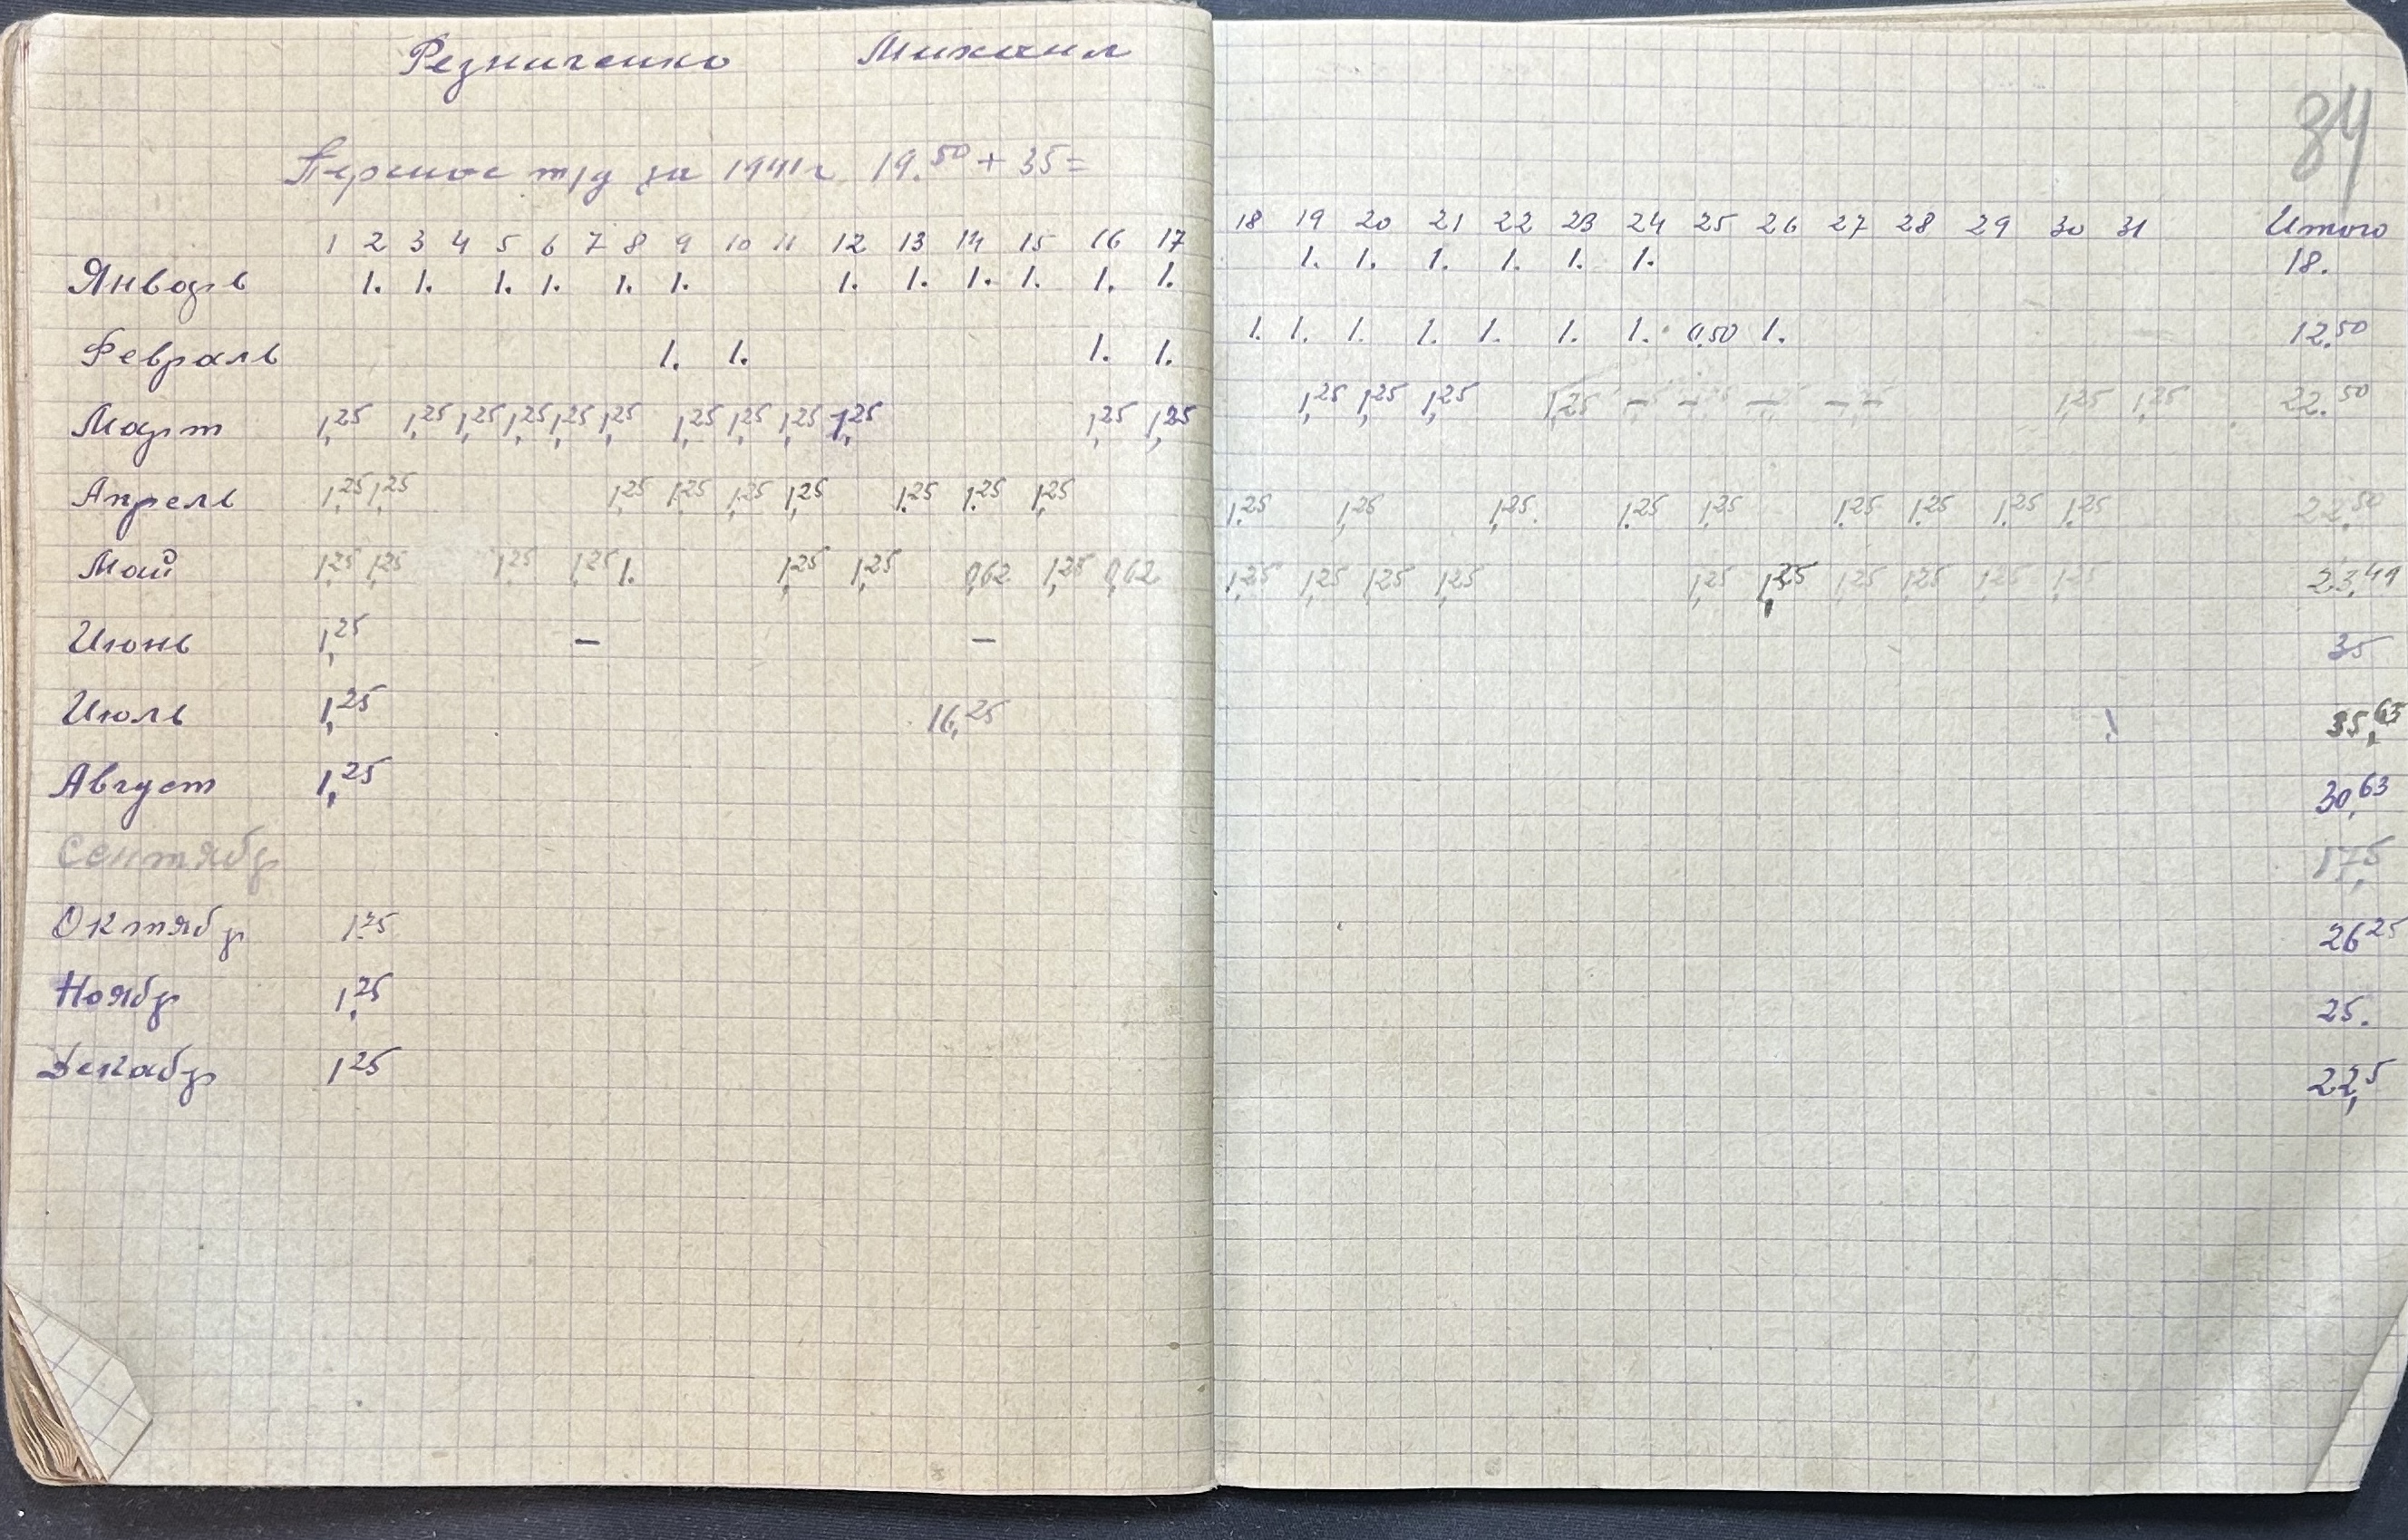 Резниченко Михаил
84
Перенос т/д за 1941 г. 19.50 + 35 =
1 2 3 4 5 6 7 8 9 10 11 12 13 14 15 16 17 18 19 20 21 22 23 24 25 26 27 28 29 30 31 Итого
Январь 1. 1. 1. 1. 1. 1. 1. 1. 1. 1. 1. 1. 1. 1. 1. 1. 1. 1. 18.
Февраль 1. 1. 1. 1. 1. 1. 1. 1. 1. 1. 1. 0,50 1. 12.50
Март 1,25 1,25 1,25 1,25 1,25 1,25 1,25 1,25 1,25 1,25 1,25 1,25 1,25 1,25 1,25 1,25 — — — — — 1,25 1,25 22.50
Апрель 1,25 1,25 1,25 1,25 1,25 1,25 1.25 1.25 1,25 1.25 1,25 1,25. 1.25 1,25 1.25 1.25 1.25 1.25 22.50
Май 1,25 1,25 1,25 1,25 1. 1,25 1,25 0,62 1,25 0,62 1,25 1,25 1,25 1,25 1,25 1,25 1,25 1,25 1,25 1,25 23,49
Июнь 1,25 — — 35
Июль 1,25 16,25 35,63
Август 1,25 30,63
Сентябр 17,5
Октябр 1.25 26 25
Ноябр 1,25 25.
Декабр 1 25 22,5